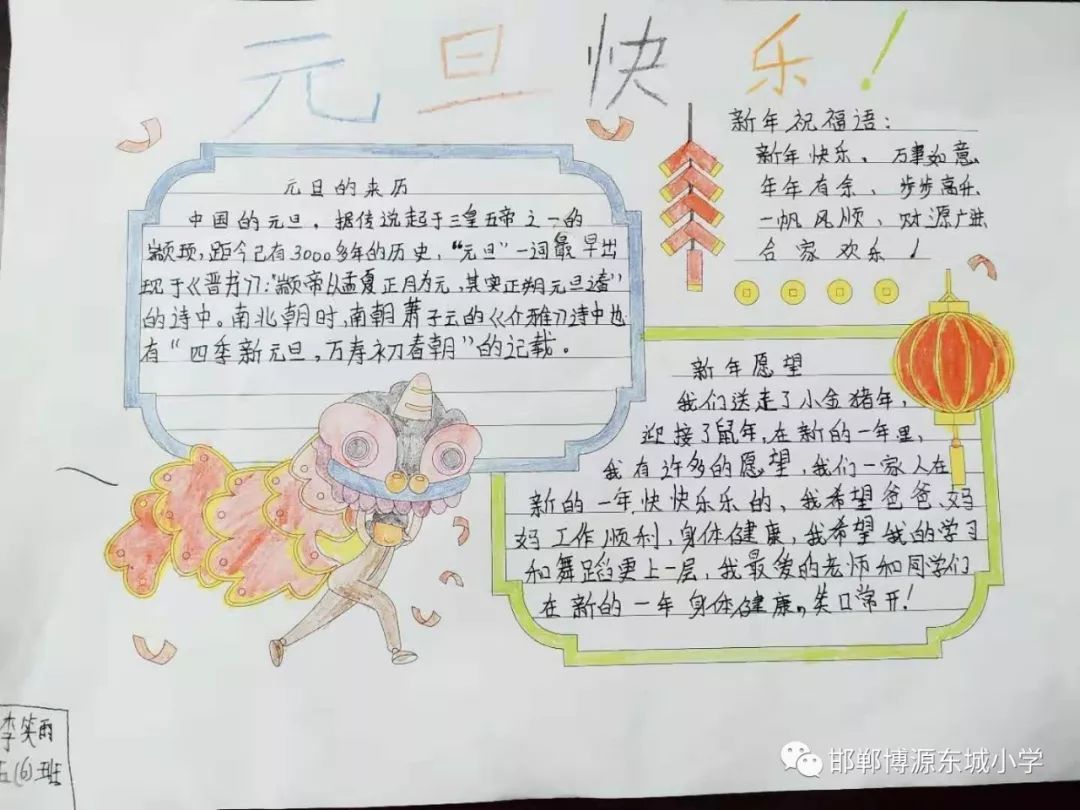 元旦快乐!
元旦的来历
中国的元旦,据传说起于三皇五帝之一的
颛顼,距今已有3000多年的历史,"元旦"一词最早出
现于《晋书》:"颛帝以孟夏正月为元,其实正朔元旦之春"
的诗中。南北朝时,南朝萧子云的《介雅》诗中也
有“四季新元旦,万寿初春朝”的记载。
新年祝福语:
新年快乐、万事如意
年年有余、步步高升
一帆风顺、财源广进
合家欢乐!
新年愿望
我们送走了小金猪年,
迎接了鼠年,在新的一年里,
我有许多的愿望,我们一家人在
新的一年,快快乐乐的、我希望爸爸、妈
妈工作顺利,身体健康,我希望我的学习
和舞蹈更上一层,我最爱的老师和同学们
在新的一年身体健康,笑口常开!
李笑雨
五(6)班
邯郸博源东城小学